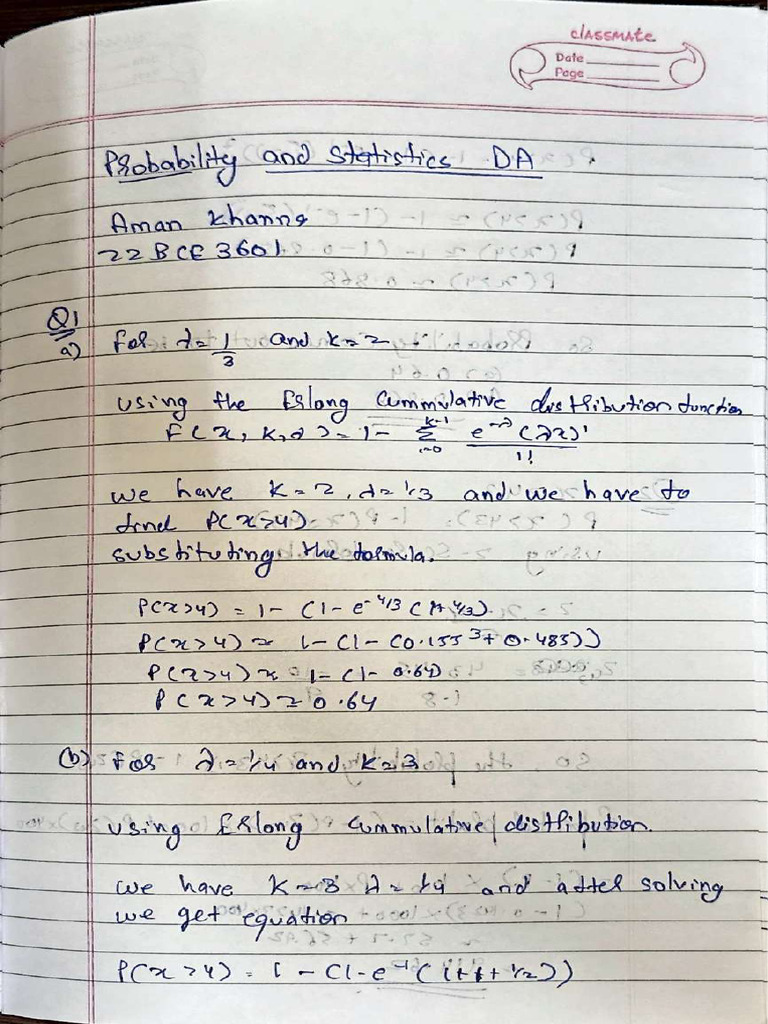 classmate
Date
Page
Probability and Statistics DA
Aman Khanna
22BCE3601
Q1
a) for λ = 1/3 and k = 2
using the Erlong cummulative distribution function
F(x, k, λ) = 1 - Σ e^-λ (λx)^i
k-1
i=0
1!
we have k = 2, λ = 1/3 and we have to
find P(x>4)
substituting the formula.
P(x>4) = 1 - (1 - e^-4/3 (1+4/3).
P(x>4) ≈ 1 - (1 - (0.155 3 + 0.485))
P(x>4) ≈ 1 - (1 - 0.64)
P(x>4) ≈ 0.64
(b) for λ = 1/4 and k = 3
using Erlong cummulative distribution.
we have k = 3 λ = 1/4 and after solving
we get equation
P(x>4) = 1 - (1 - e^-1 (1+1+1/2))